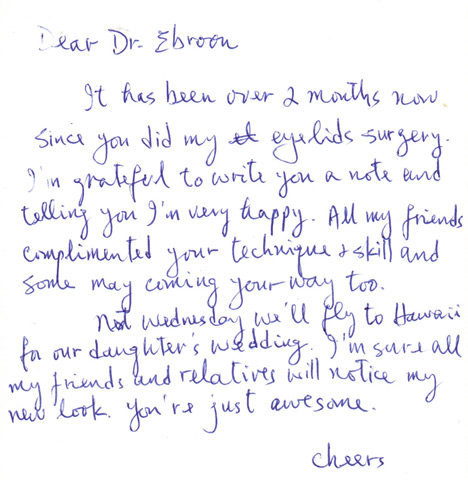 Dear Dr. Ebroon
It has been over 2 months now
since you did my eyelids surgery.
I'm grateful to write you a note and
telling you I'm very happy. All my friends
complimented your technique & skill and
some may coming your way too.
Next Wednesday we'll fly to Hawaii
for our daughter's wedding. I'm sure all
my friends and relatives will notice my
new look. You're just awesome.
Cheers